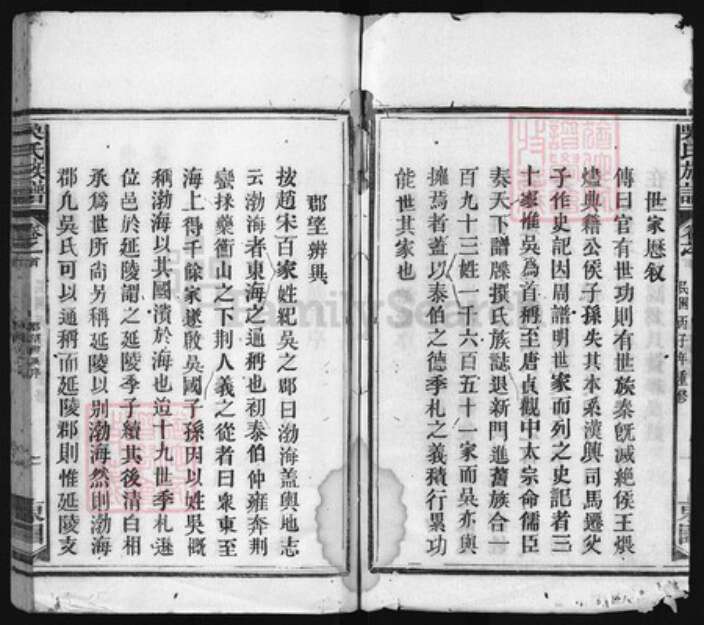 吳氏族譜
世家歷叙
民國丙子年重修
傳曰官有世功則有世族秦旣滅絶侯王煨
燼典籍公侯子孫失其本系漢興司馬遷父
子作史記因周譜明世家而列之史記者三
十家惟吳爲首稱至唐貞觀中太宗命儒臣
奏天下譜牒撰氏族誌退新門進舊族合一
百九十三姓一千六百五十一家而吳亦與
擁焉者蓋以泰伯之德季札之義積行累功
能世其家也
郡望辨異
按趙宋百家姓紀吳之郡曰渤海蓋輿地志
云渤海者東海之通稱也初泰伯仲雍奔荆
蠻採藥衡山之下荆人義之從者曰衆東至
海上得千餘家遂啟吳國子孫因以姓吳概
稱渤海以其國濱於海也迨十九世季札遜
位邑於延陵謂之延陵季子續其後清白相
承爲世所尚另稱延陵以别渤海然則渤海
郡凢吳氏可以通稱而延陵郡則惟延陵支
吳氏族譜
卷之首